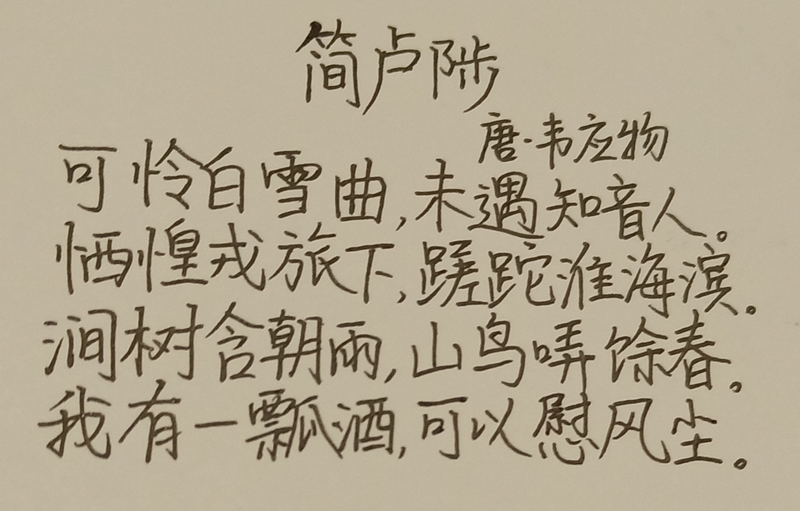 简卢陟
唐·韦应物
可怜白雪曲,未遇知音人。
恓惶戎旅下,蹉跎淮海滨。
涧树含朝雨,山鸟哢馀春。
我有一瓢酒,可以慰风尘。